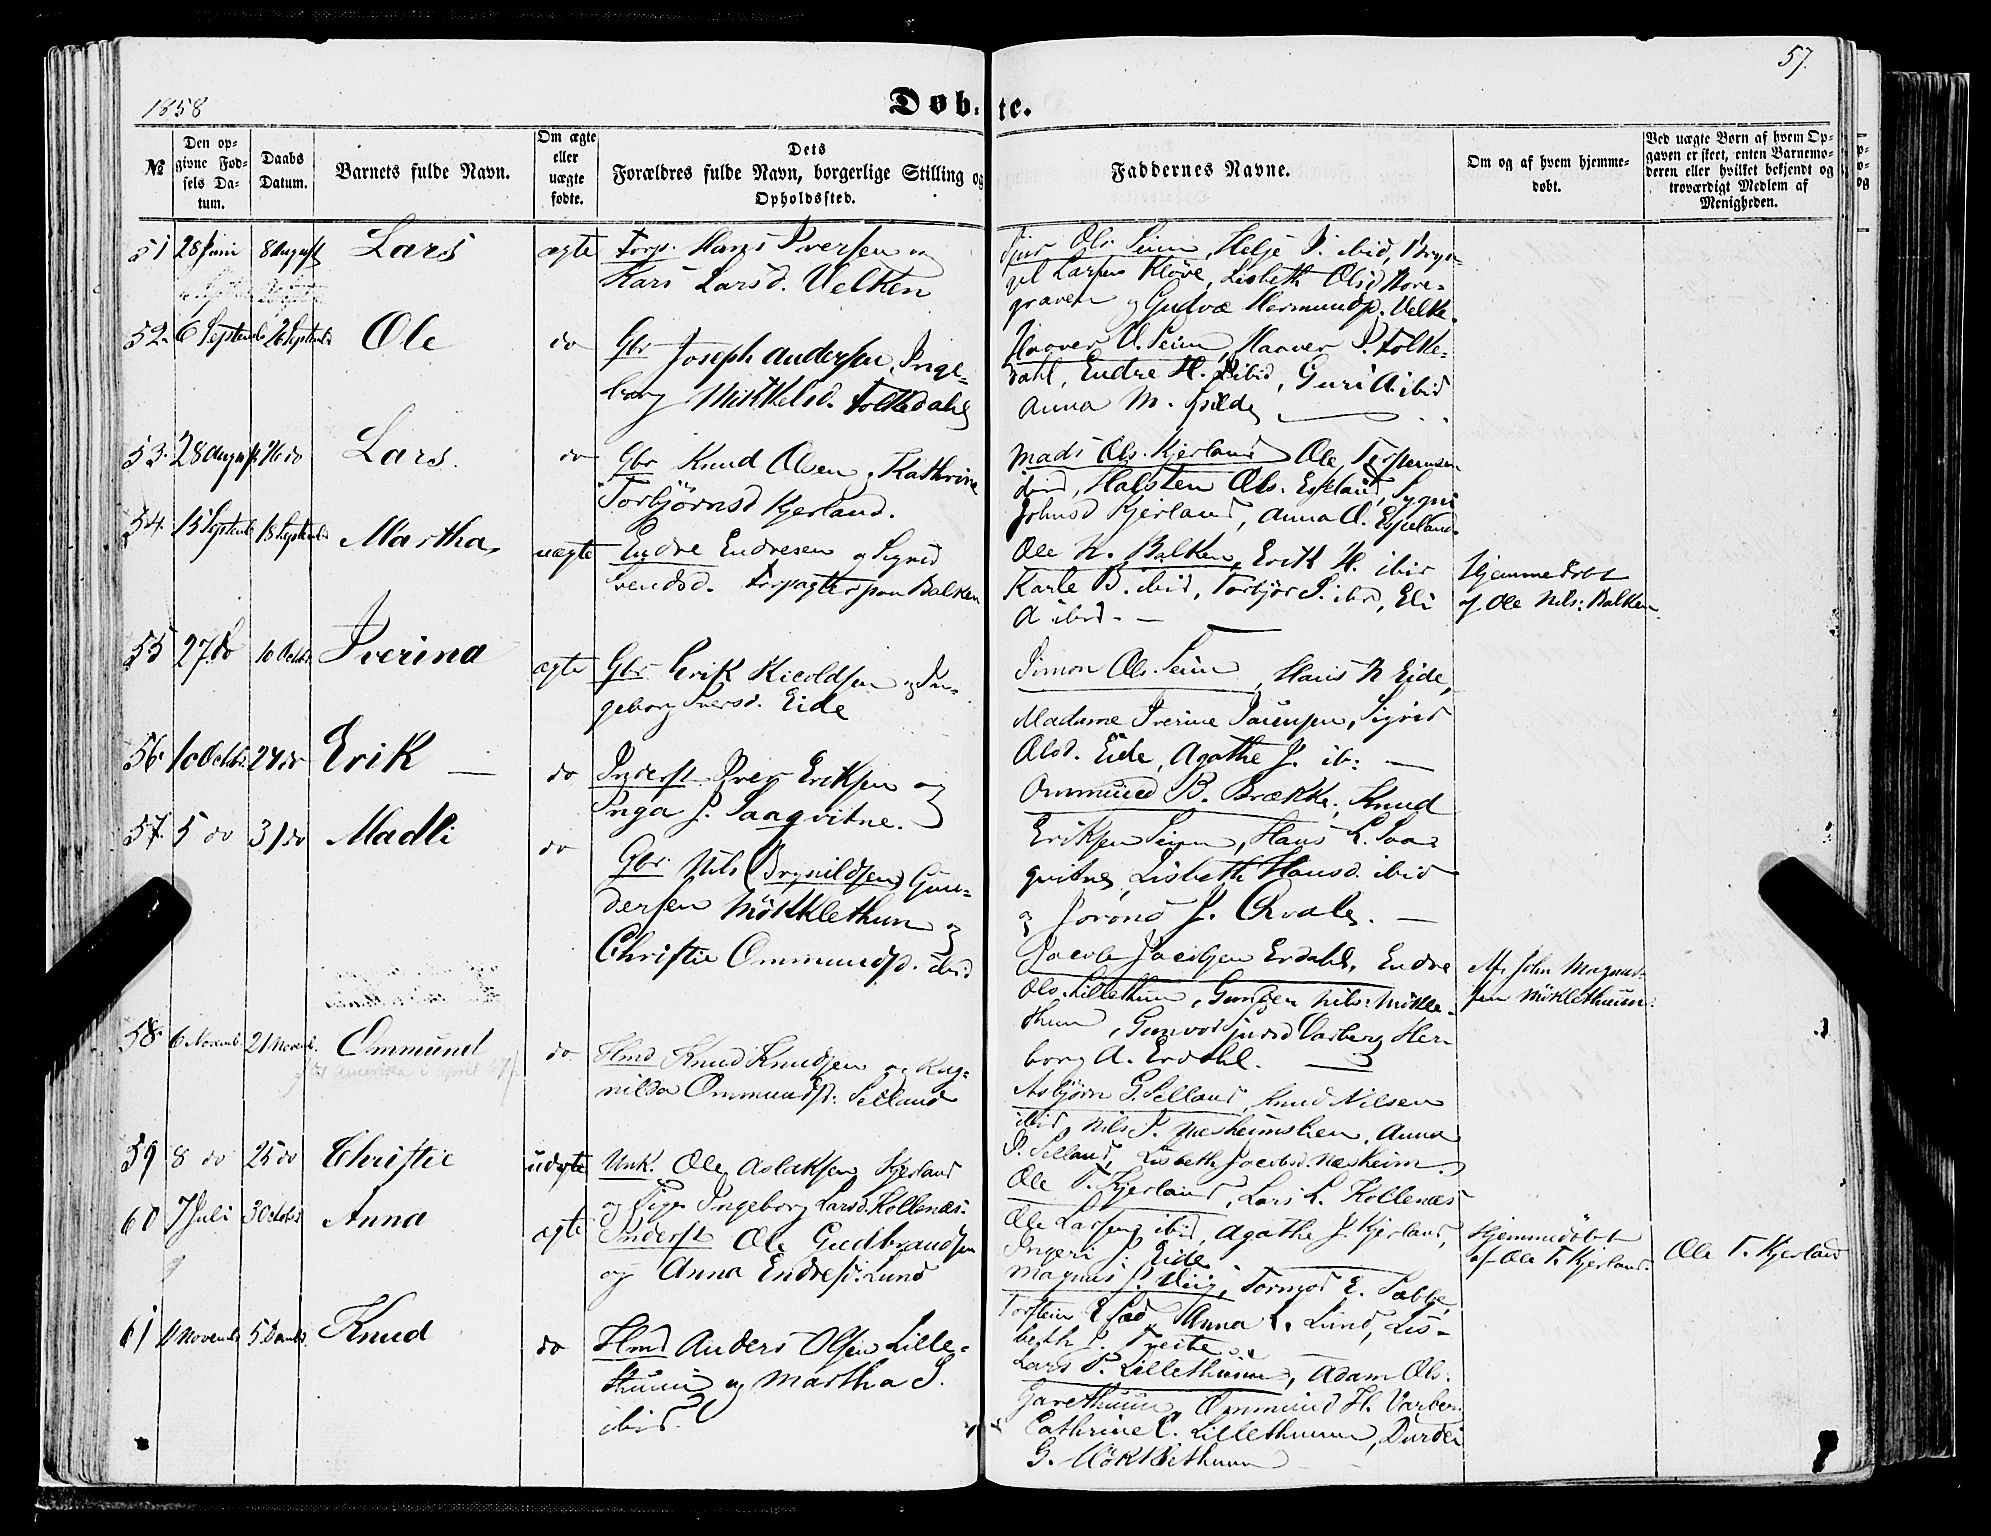 57.
1858
Døbte.
No
Den opgivne Fødsels Datum.
Daabs Datum.
Barnets fulde Navn.
Om ægte eller uægte fødte.
Dets Forældres fulde Navn, borgerlige Stilling og Opholdssted.
Faddernes Navne.
Om og af hvem hjemmedøbt.
Ved uægte Børn af hvem Opgaven er skeet, enten Barnemoderen eller hvilket bekjendt og troværdigt Medlem af Menigheden.
51 28 Juni 8 August Lars ægte Forp. Hans Iversen og
Kari Larsd. Velken
Ols. Seim, Helje I. ibid, Bryn-
gel Larsen Kløve, Lisbeth Olsd Nore-
graven og Gudve Hermundsd. Velke.
52. 6 Septemb 26 Septemb Ole do Gbr Joseph Andersen, Inge-
borg Mikkelsd. Folkedahl
Haaver O. Seim, Haaver P. Folke-
dahl, Endre H. ibid, Guri A. ibid
Anna M.
53. 28 August 26 do Lars. do Gbr Knud Olsen og Kathrine
Torbjörnsd Kjerland.
Mads Ols. Kjerland Ole
ibid, Halsten Ols. Espeland, Sygni
Johnsd Kjerland, Anna O. Espeland.
54. 15 Septemb 18 Septemb Martha. uægte Endre Endresen og Sigrid
Svendsd. Forpagter paa Balken
Ole N. Balken, Erik H. ibid
Karle B. ibid, Torbjør I. ibid, Eli
A ibid. —
Hjemmedøbt
af Ole Nils: Balken.
55 27 do 10 Octb. Iverina ægte Gbr Erik Nicoldsen og In-
geborg Iversd. Eide
Simon Ols. Seim, Hans N Eide,
Madame Iverine, Sigrid
Olsd. Eide, Agathe J. ib: —
56. 10 Octb. 24 do Erik — do Inderst Iver Eriksen og
Inga J. Saaqvitne.
Ommund B. Brække, Knud
Eriksen Seim, Hans L. Saa-
qvitne, Lisbeth Hansd. ibid
og Jorond J. —
57. 5 do 31 do Madli do Gbr. Nils Brynildsen Gun-
dersen Mökklethun og
Christie Ommundsd. ibid
Jacob Jacobsen Erdahl, Endre
Ols. Lillethun, Nils: Mökle-
thun, Gunvor Varberg Her-
borg A. Erdahl.
Af John Magnus-
sen Möklethuun.
58. 6 Novemb. 21 Novemb. Ommund do Hmd Knud Knudsen og Rag-
nilda Ommundsd. Selland
til Amerika i April
Asbjörn G. Selland, Knud Nilsen
ibid, Nils P. Næsheimslien, Anna
P. Selland, Lisbeth Jacobsd. Næsheim.
59 8 do 25 do Christie uægte Unk. Ole Aslaksen Kjerland
og Pige Ingeborg Larsd. Kollenæs.
Ole T. Kjerland, Lars L. Kollenæs
Ole Larsen ibid, Agathe J. Kjerland,
Ingeri J. Eide.
Hjemmedöbt
af Ole T. Kjerland.
Ole T. Kjerland
60 7 Juli 3 Octob Anna ægte Inderst Ole Gudbrandsen
og Anna Endresd. Lund
Magnus J. Tormod E. Sæbbe,
Torstein E Anna L. Lund, Lis-
beth P. Treite.
61 Novemb 5 Decemb. Knud do Hmd Anders Olsen Lille-
thuun og Martha S.
ibid.
Lars P. Lillethuun, Adam Ols.
Garethuun, Ommund H. Varber.
Cathrine E. Lillethuun, Durdei
G. Mökklethuun